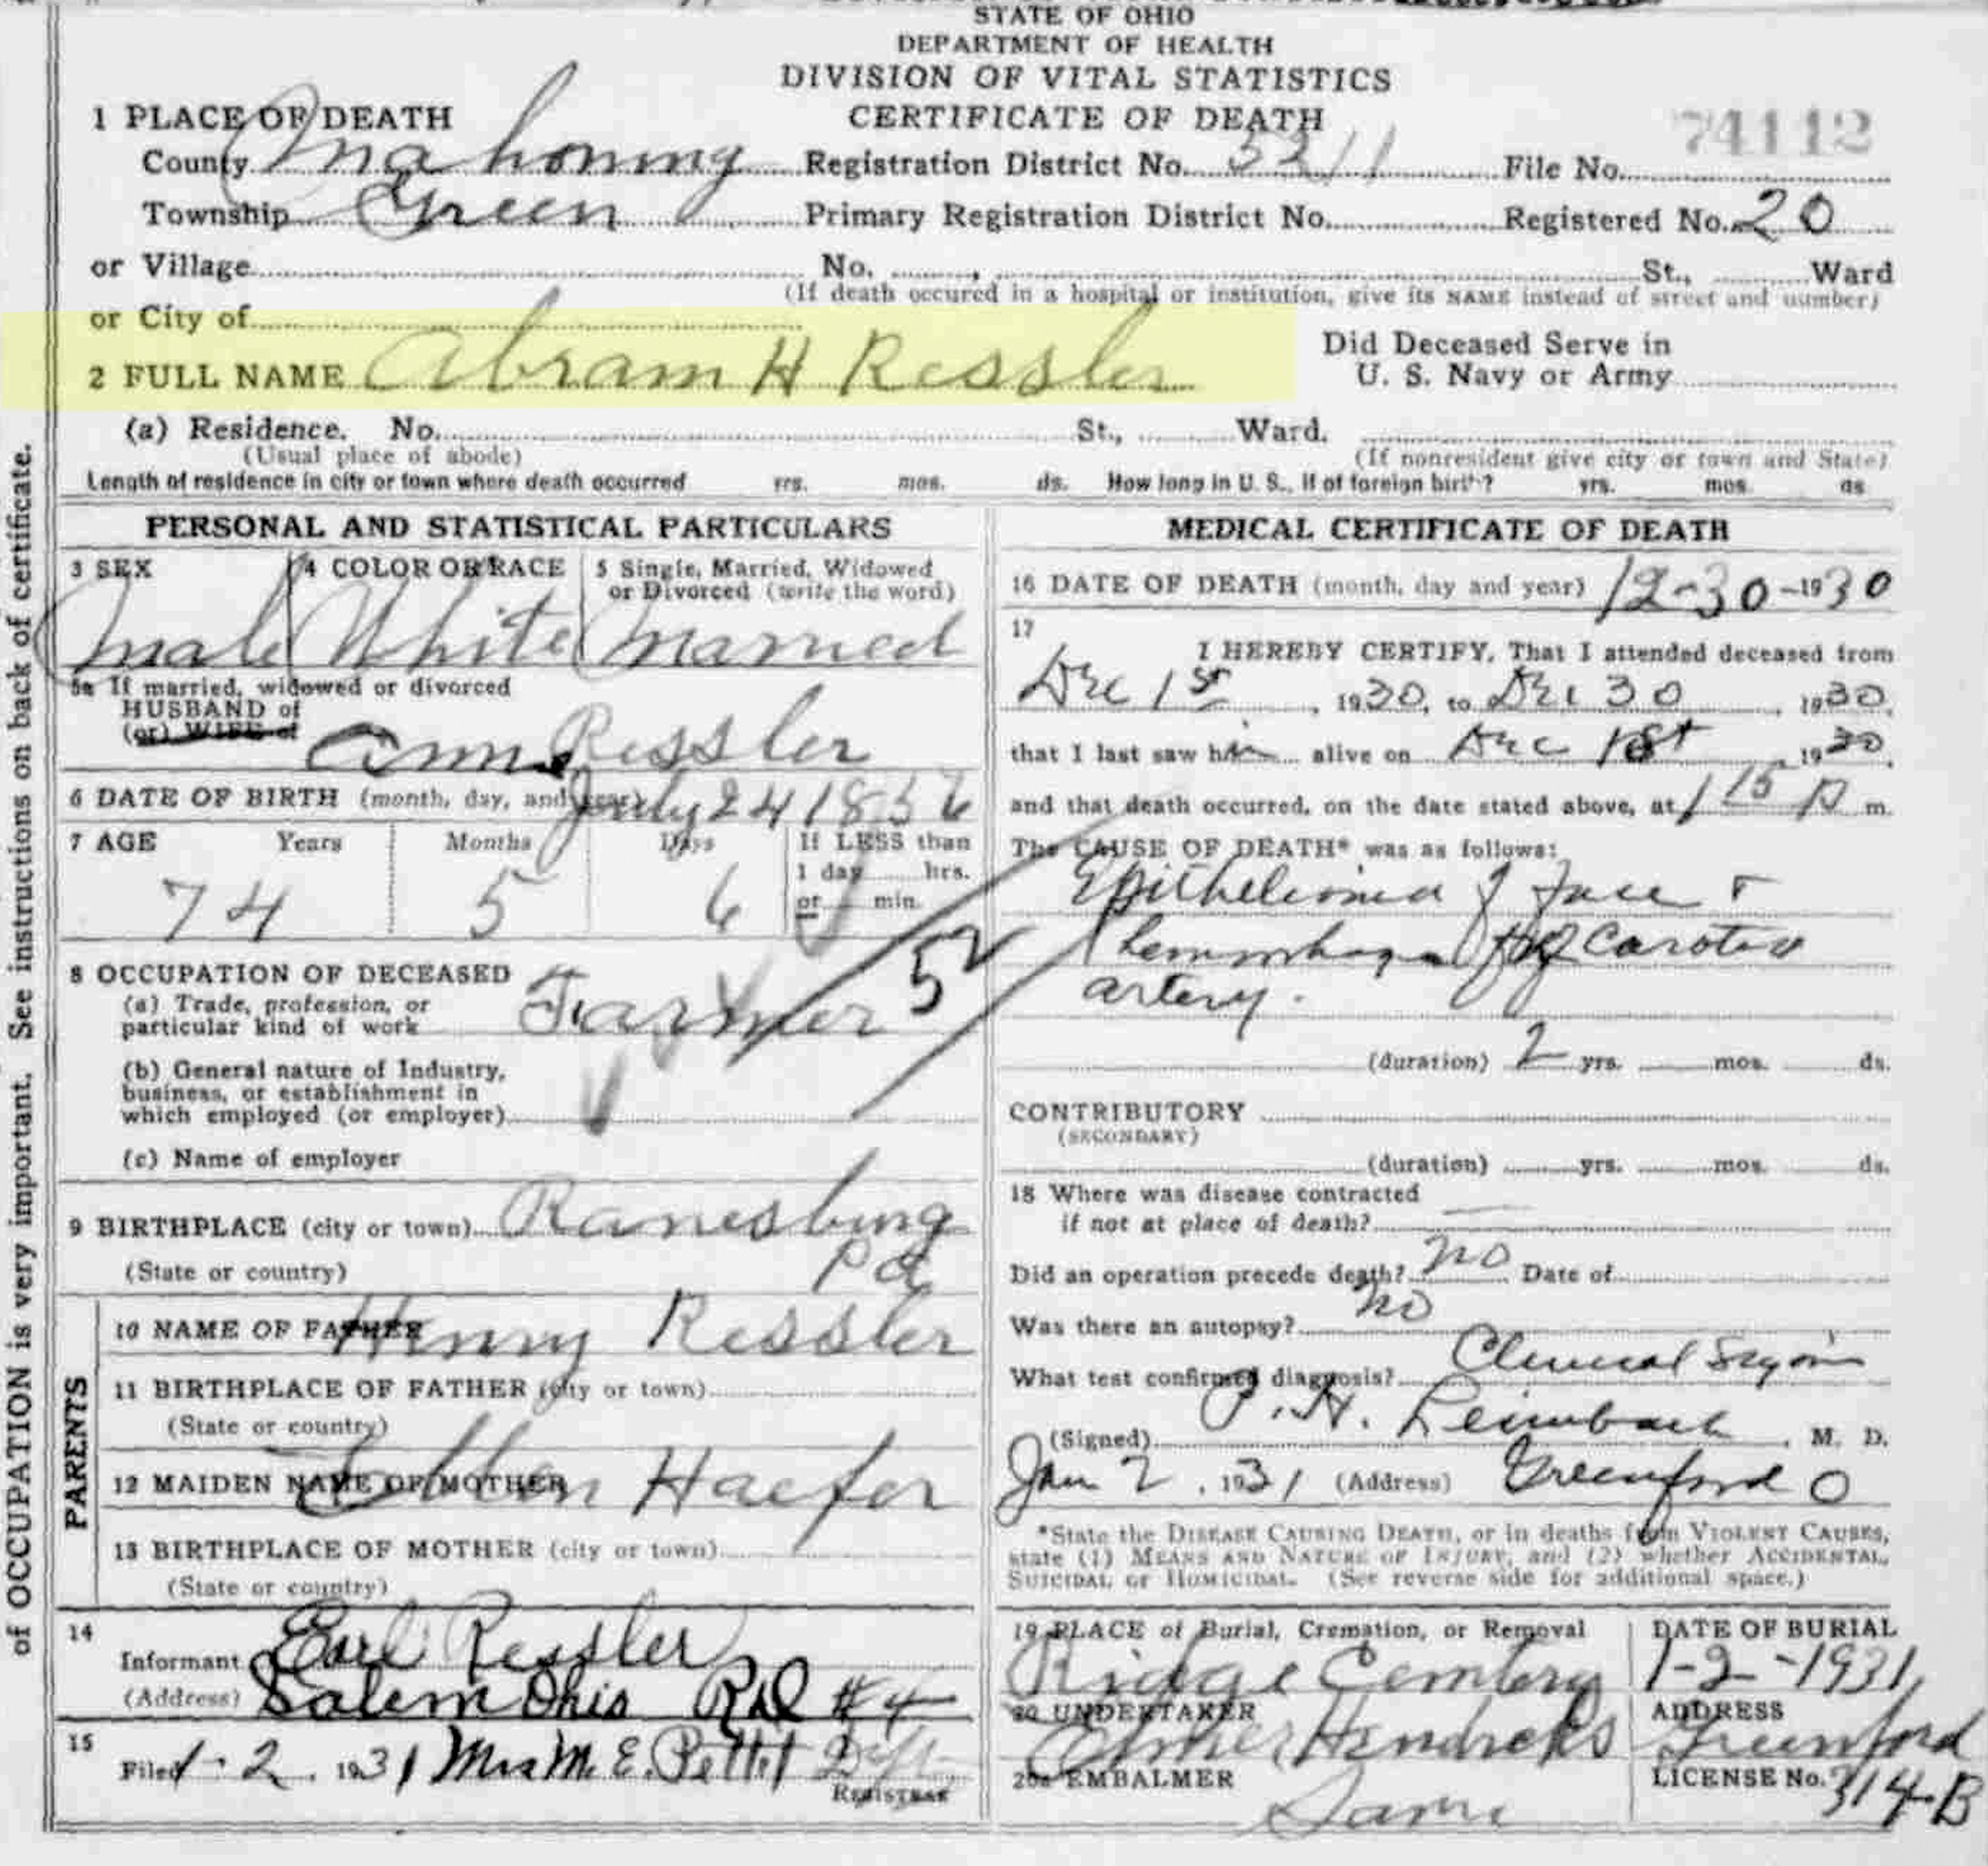 STATE OF OHIO
DEPARTMENT OF HEALTH
DIVISION OF VITAL STATISTICS
CERTIFICATE OF DEATH
74112
1 PLACE OF DEATH
County Mahoning Registration District No. 5311 File No.
Township Green Primary Registration District No. Registered No. 20
or Village No. , St., Ward
(If death occured in a hospital or institution, give its NAME instead of street and number)
or City of
2 FULL NAME Abram H Ressler
Did Deceased Serve in
U. S. Navy or Army
(a) Residence. No. St., Ward.
(Usual place of abode) (If nonresident give city or town and State)
Length of residence in city or town where death occurred yrs. mos. ds. How long in U. S., if of foreign birth? yrs. mos. ds
PERSONAL AND STATISTICAL PARTICULARS
3 SEX 4 COLOR OR RACE 5 Single, Married, Widowed
or Divorced (write the word)
Male White Married
5a If married, widowed or divorced
HUSBAND of
(or) WIFE of
Ressler
6 DATE OF BIRTH (month, day, and year) July 24 1856
7 AGE Years Months Days If LESS than
1 day hrs.
or min.
74 5 6
52
8 OCCUPATION OF DECEASED
(a) Trade, profession, or
particular kind of work Farmer
(b) General nature of Industry,
business, or establishment in
which employed (or employer)
(c) Name of employer
9 BIRTHPLACE (city or town) Ranesburg
(State or country) Pa
PARENTS
10 NAME OF FATHER Henry Ressler
11 BIRTHPLACE OF FATHER (city or town)
(State or country)
12 MAIDEN NAME OF MOTHER Haefer
13 BIRTHPLACE OF MOTHER (city or town)
(State or country)
14
Informant Earl Ressler
(Address) Salem Ohio #4
15
Filed 1-2, 1931 Mrs M. E. Pettit
REGISTRAR
MEDICAL CERTIFICATE OF DEATH
16 DATE OF DEATH (month, day and year) 12-30-1930
17
I HEREBY CERTIFY, That I attended deceased from
Dec 1st, 1930, to Dec 30, 1930,
that I last saw him alive on Dec 1930,
and that death occurred, on the date stated above, at 1 15 P m.
The CAUSE OF DEATH* was as follows:
Epithelioma of face +
hemorrhage of Carotid
artery.
(duration) 2 yrs. mos. ds.
CONTRIBUTORY
(SECONDARY)
(duration) yrs. mos. ds.
18 Where was disease contracted
if not at place of death?
Did an operation precede death? no Date of
Was there an autopsy? no
What test confirmed diagnosis? Clinical
(Signed) P. H. Leimbach, M. D.
Jan 2, 1931 (Address) Greenford O
*State the DISEASE CAUSING DEATH, or in deaths from VIOLENT CAUSES,
state (1) MEANS AND NATURE OF INJURY, and (2) whether ACCIDENTAL,
SUICIDAL or HOMICIDAL. (See reverse side for additional space.)
19 PLACE of Burial, Cremation, or Removal DATE OF BURIAL
Ridge 1-2-1931
20 UNDERTAKER ADDRESS
Elmer Hendricks Greenford
20a EMBALMER LICENSE No. 314-B
Same
of OCCUPATION is very important. See instructions on back of certificate.